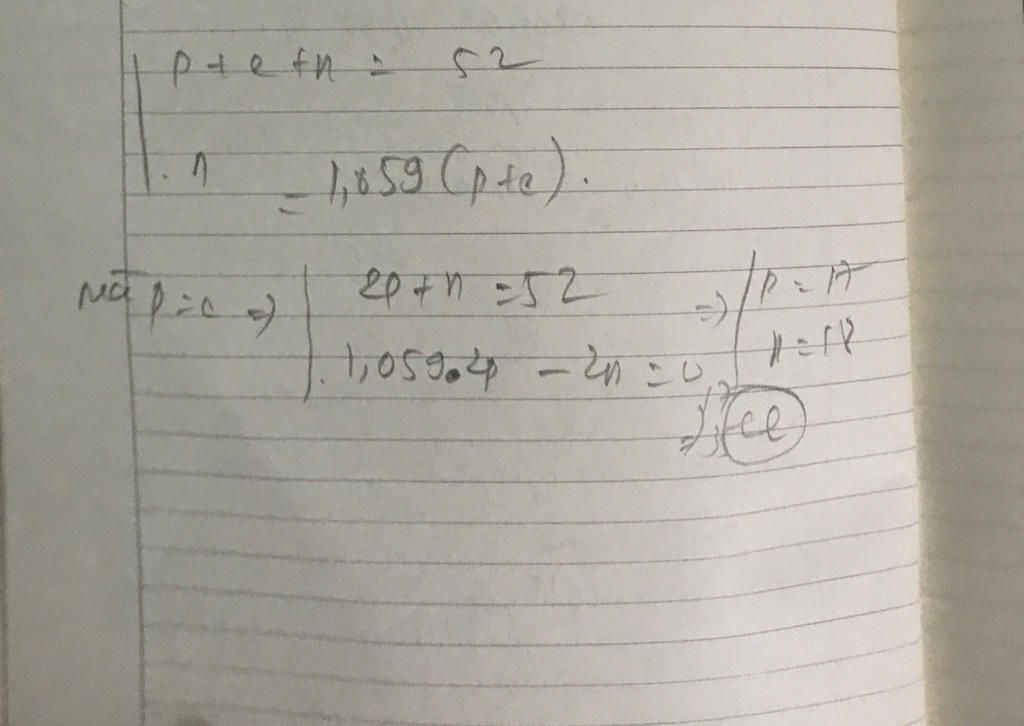 p + e + n = 52
n = 1,059 (p + e).
Mà p = e => 2p + n = 52 => p = 17
1,059.2p - 2n = 0 n = 18
=> Cl